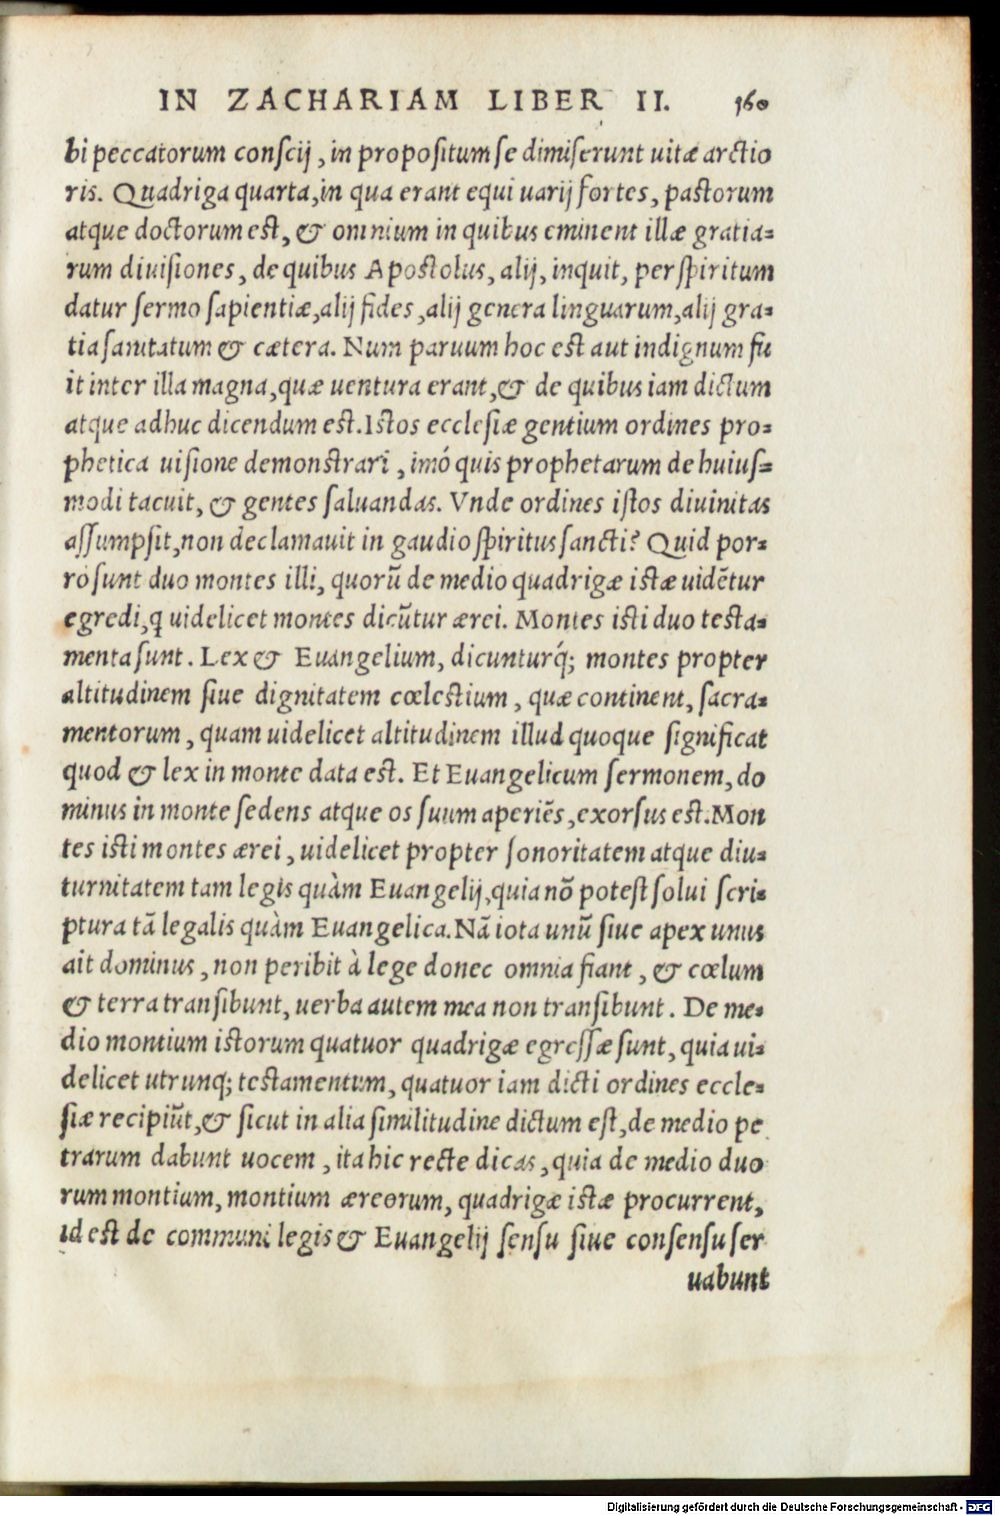 IN ZACHARIAM LIBER II. 160
bi peccatorum conscij, in propositum se dimiserunt uitæ arctio
ris. Quadriga quarta, in qua erant equi uarij fortes, pastorum
atque doctorum est, & omnium in quibus eminent illæ gratia-
rum diuisiones, de quibus Apostolus, alij, inquit, per spiritum
datur sermo sapientiæ, alij fides, alij genera linguarum, alij gra-
tia sanitatum & cætera. Num paruum hoc est aut indignum fu
it inter illa magna, quæ uentura erant, & de quibus iam dictum
atque adhuc dicendum est. Istos ecclesiæ gentium ordines pro-
phetica uisione demonstrari, imó quis prophetarum de huius-
modi tacuit, & gentes saluandas. Vnde ordines istos diuinitas
assumpsit, non declamauit in gaudio spiritus sancti? Quid por-
ro sunt duo montes illi, quorũ de medio quadrigæ istæ uidẽtur
egredi, q uidelicet montes dicũtur ærei. Montes isti duo testa-
menta sunt. Lex & Euangelium, dicunturq́; montes propter
altitudinem siue dignitatem cœlestium, quæ continent, sacra-
mentorum, quam uidelicet altitudinem illud quoque significat
quod & lex in monte data est. Et Euangelicum sermonem, do
minus in monte sedens atque os suum aperiẽs, exorsus est. Mon
tes isti montes ærei, uidelicet propter sonoritatem atque diu-
turnitatem tam legis quàm Euangelij, quia nõ potest solui scri-
ptura tã legalis quàm Euangelica. Nã iota unũ siue apex unus
ait dominus, non peribit à lege donec omnia fiant, & cœlum
& terra transibunt, uerba autem mea non transibunt. De me-
dio montium istorum quatuor quadrigæ egressæ sunt, quia ui-
delicet utrunq; testamentum, quatuor iam dicti ordines eccle-
siæ recipiũt, & sicut in alia similitudine dictum est, de medio pe
trarum dabunt uocem, ita hic recte dicas, quia de medio duo
rum montium, montium æreorum, quadrigæ istæ procurrent,
id est de communi legis & Euangelij sensu siue consensu ser
uabunt
Digitalisierung gefördert durch die Deutsche Forschungsgemeinschaft - DFG